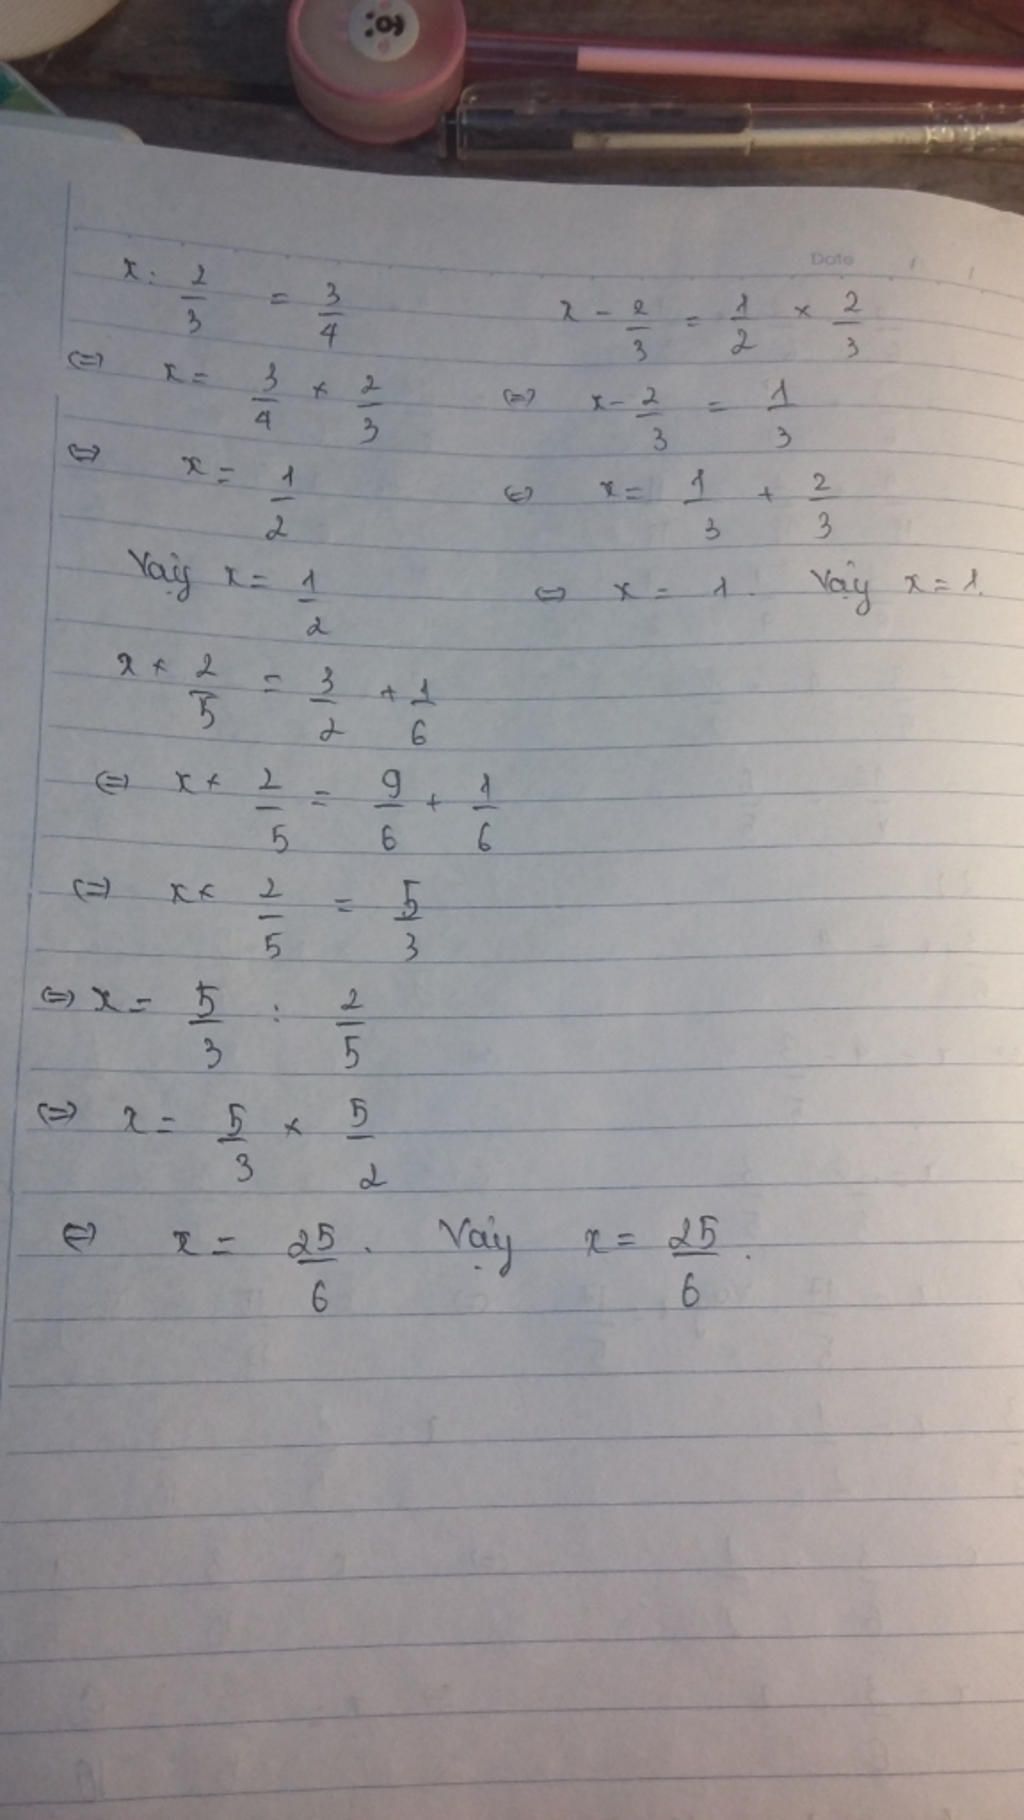 Date
x : 2/3 = 3/4
⇔ x = 3/4 × 2/3
⇔ x = 1/2
Vậy x = 1/2
x - 2/3 = 1/2 × 2/3
⇔ x - 2/3 = 1/3
⇔ x = 1/3 + 2/3
⇔ x = 1. Vậy x = 1.
x × 2/5 = 3/2 + 1/6
⇔ x × 2/5 = 9/6 + 1/6
⇔ x × 2/5 = 5/3
⇔ x = 5/3 : 2/5
⇔ x = 5/3 × 5/2
⇔ x = 25/6. Vậy x = 25/6.